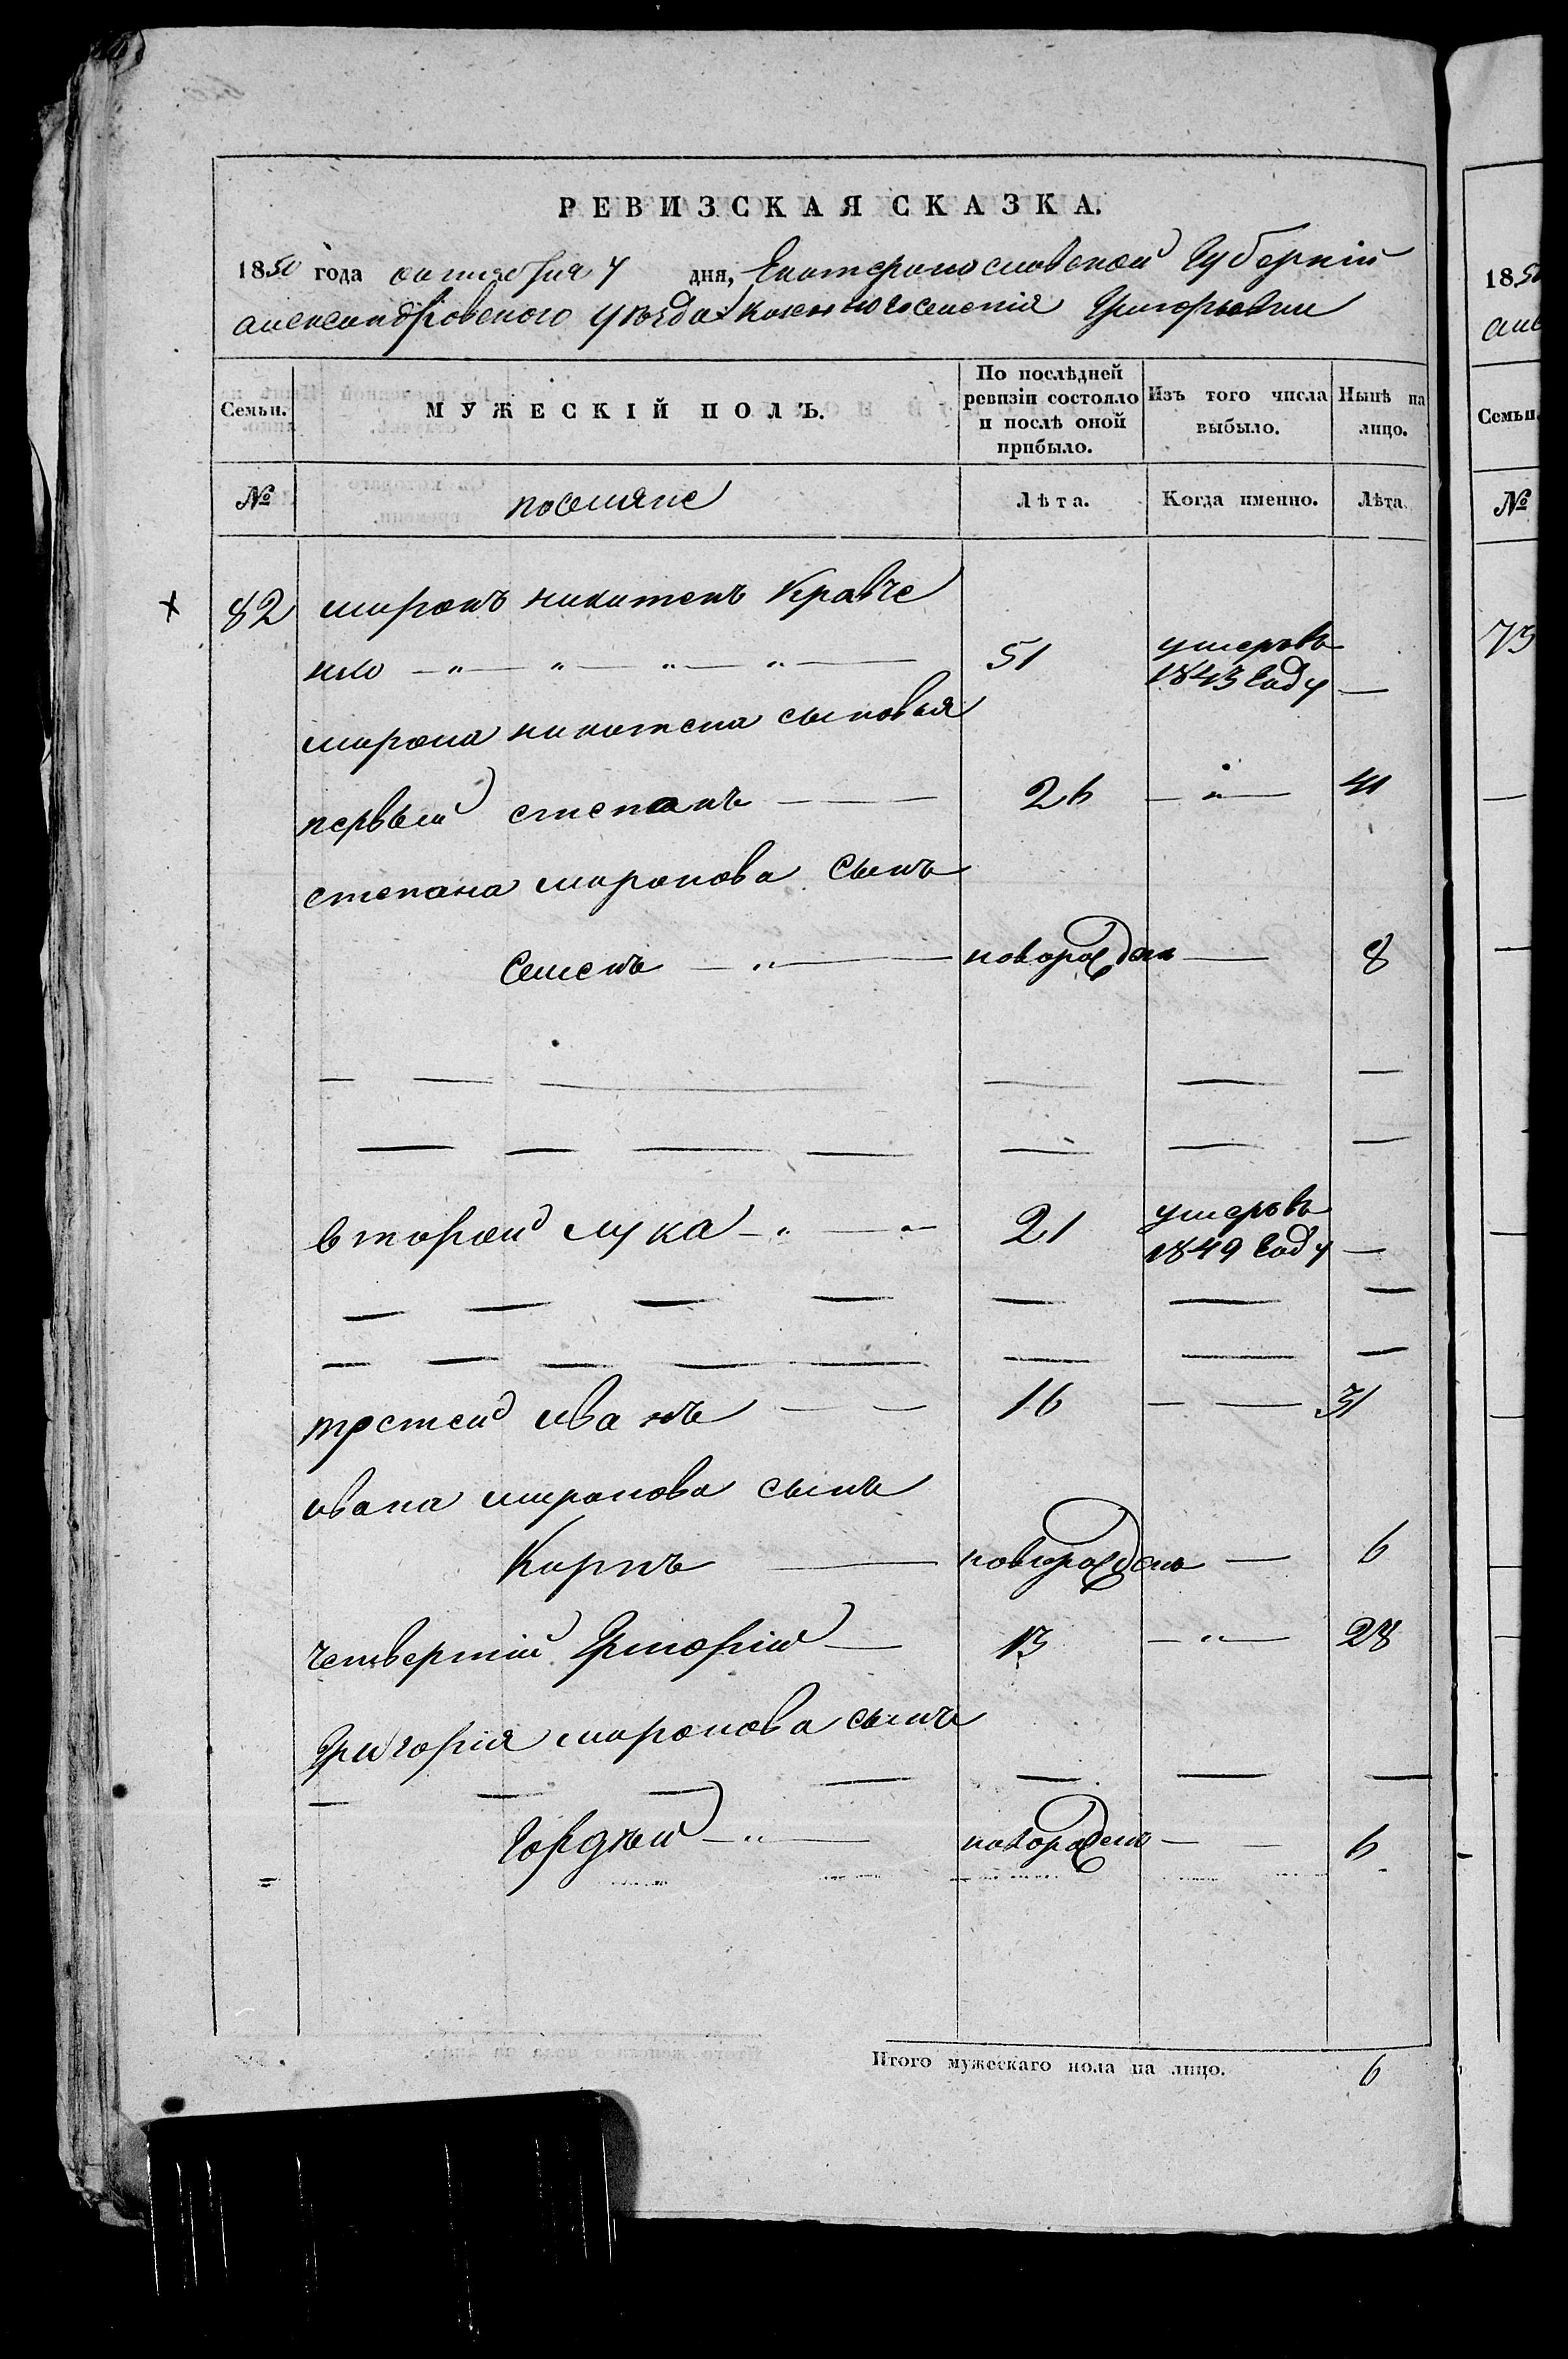 РЕВИЗСКАЯ СКАЗКА.
1850 года октября 4 дня, Екатеринославской Губернии
александровского уѣзда казенного селения Григорьевки
Семьи.
МУЖЕСКІЙ ПОЛЪ.
По послѣдней ревизіи состояло и послѣ оной прибыло.
Изъ того числа выбыло.
Нынѣ на лицо.
№
поселяне
Лѣта.
Когда именно.
Лѣта.
82 миронъ никитенъ Кравче
нко 51 умеръ въ 1843 году
мирона никитена сыновья
первый степанъ 26 41
степана миронова сынъ
Семенъ новорожден 8
второй лука 21 умеръ въ 1849 году
третей иванъ 16 31
ивана миронова сынъ
Карпъ новорожденъ 6
четвертий Григорій 13 28
Григорія миронова сынъ
Гордѣй новорожденъ 6
Итого мужескаго пола на лицо. 6
1850
Семьи.
№
73